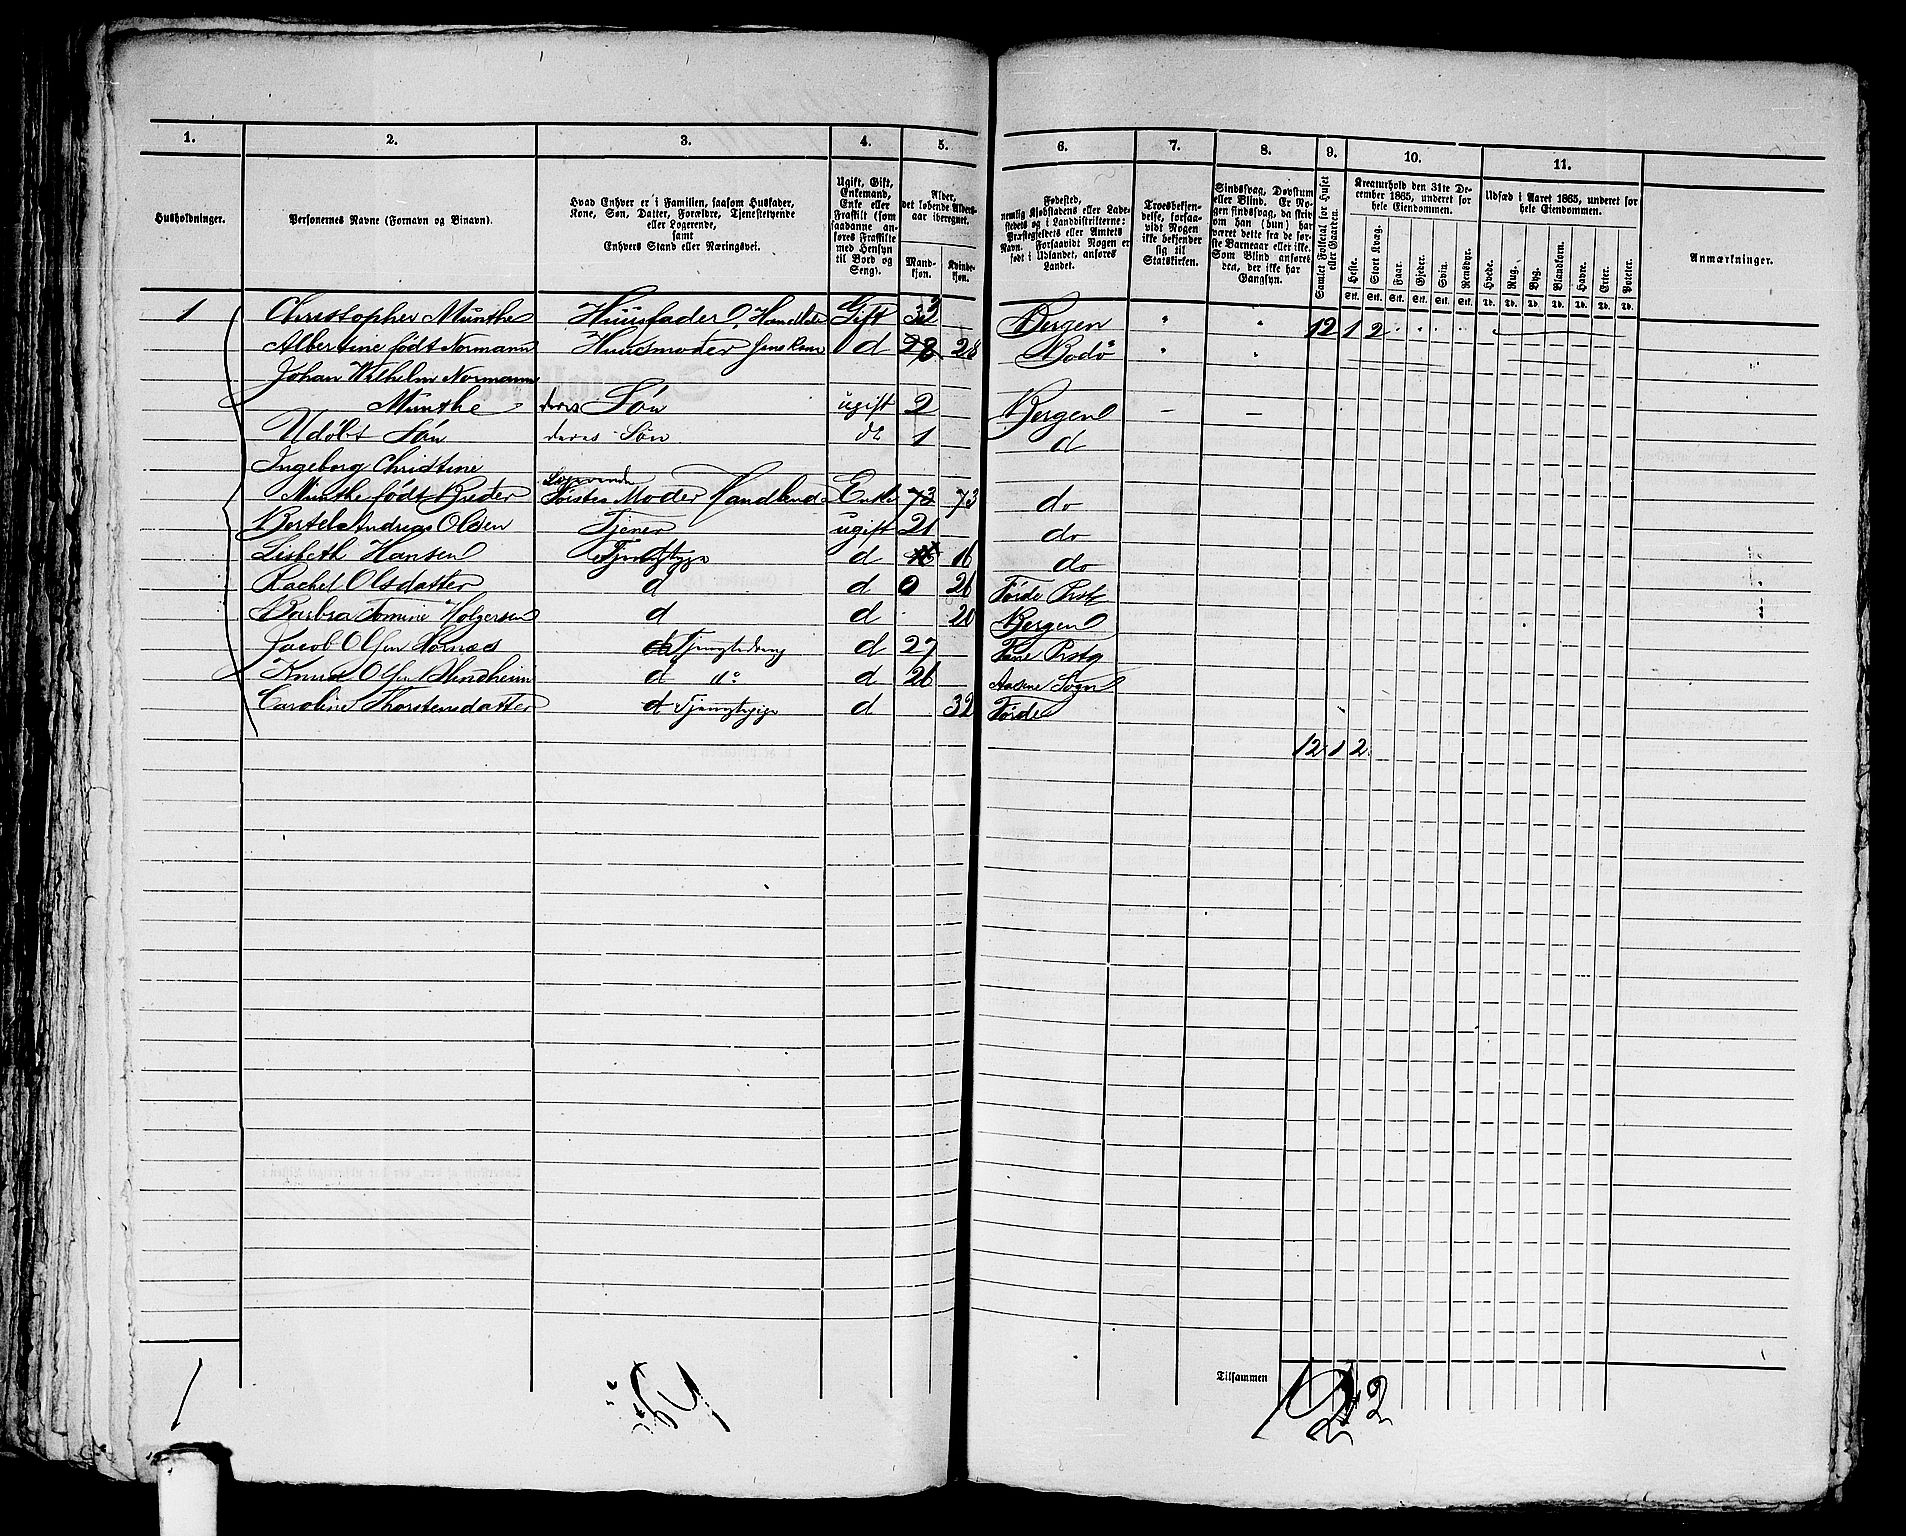 1. 2. 3. 4. 5. 6. 7. 8. 9. 10. 11.
Husholdninger.
Personernes Navne (Fornavn og Binavn).
Hvad Enhver er i Familien, saasom Husfader,
Kone, Søn, Datter, Forældre, Tjenestetyende
eller Logerende,
samt
Enhvers Stand eller Næringsvei.
Ugift, Gift,
Enkemand,
Enke eller
Fraskilt (som
saadanne an-
føres Fraskilte
med Hensyn
til Bord og
Seng).
Alder,
det løbende Alders-
aar iberegnet.
Mand-
kjøn.
Kvinde-
kjøn.
Fødested,
nemlig Kjøbstadens eller Lade-
stedets og i Landdistrikterne:
Præstegjeldets eller Amtets
Navn. Forsaavidt Nogen er
født i Udlandet, anføres
Landet.
Troesbekjen-
delse, forsaa-
vidt Nogen
ikke bekjender
sig til
Statskirken.
Sindssvag, Døvstum
eller Blind. Er No-
gen sindssvag, da skriv
om han (hun) har
været dette fra de før-
ste Barneaar eller ikke.
Som Blind anføres
den, der ikke har
Gangsyn.
Samlet Folketal for Huset
eller Gaarden.
Kreaturhold den 31te De-
cember 1865, underet for
hele Eiendommen.
Heste. Stort Kvæg. Faar. Gjeder. Svin. Rensdyr.
Stk. Stk. Stk. Stk. Stk. Stk.
Udsæd i Aaret 1865, underet for
hele Eiendommen.
Hvede. Rug. Byg. Blandkorn. Havre. Erter. Poteter.
Td. Td. Td. Td. Td. Td. Td.
Anmærkninger.
1 Christopher Munthe Huusfader, Handlde Gift 33 Bergen " " 12 1 2
Albertine født Normann Huusmoder hans Kone d 28 28 Bodø " "
Johan Wilhelm Normann
Munthe deres Søn ugift 2 Bergen – –
Udøbt Søn deres Søn do 1 d
Ingeborg Christine
Logerende
Munthe født Kreder Moder Handlende Enke 73 73 do
Bertel Andreas Olsen Tjener ugift 21 do
Lisbeth Hansen d 16 do
Rachel Olsdatter d d 0 26 Førde Prstg
Barbra Tomine Holgersen d d 20 Bergen
Jacob Olsen d 27 Fane Prstg
Knud Olsen d "o d 26 Sogn
Caroline Thorstensdatter d d 32 Førde
12 1 2
Tilsammen
1
12